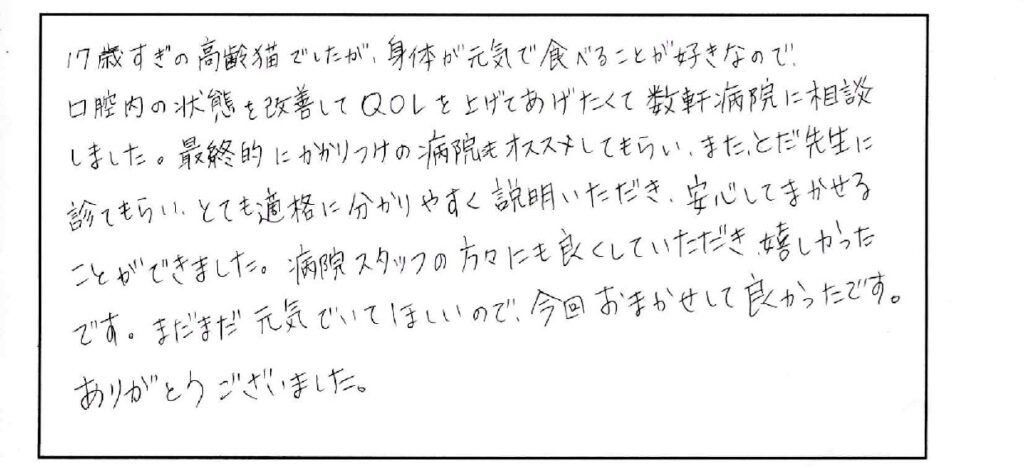 17歳すぎの高齢猫でしたが、身体が元気で食べることが好きなので、
口腔内の状態を改善してQOLを上げてあげたくて数軒病院に相談
しました。最終的にかかりつけの病院もオススメしてもらい、また、とだ先生に
診てもらい、とても適格に分かりやすく説明いただき、安心してまかせる
ことができました。病院スタッフの方々にも良くしていただき、嬉しかった
です。まだまだ元気でいてほしいので、今回おまかせして良かったです。
ありがとうございました。